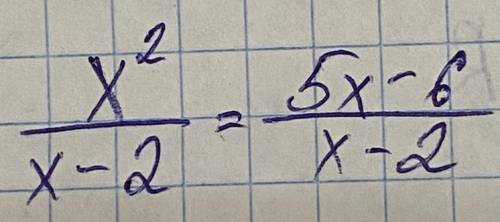 x²/(x-2) = (5x-6)/(x-2)